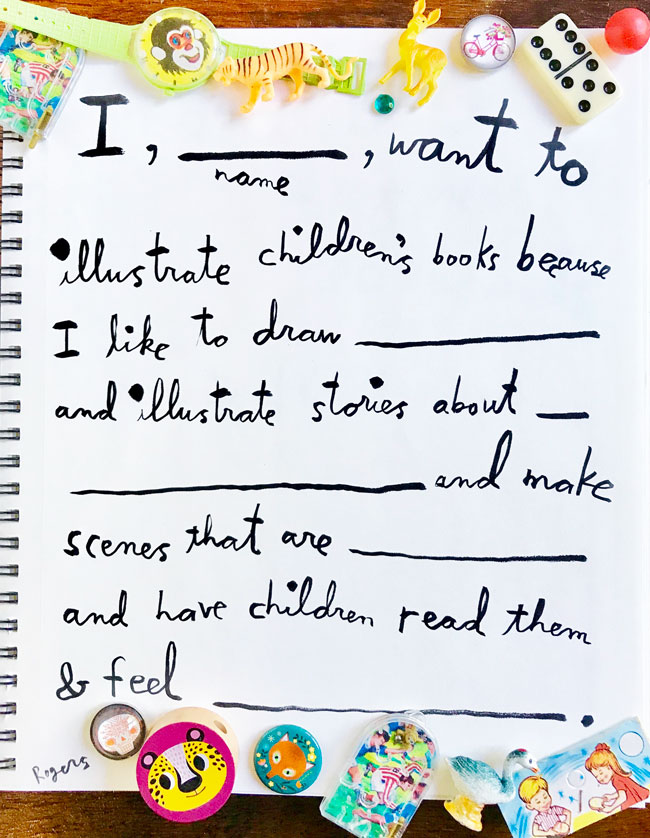 I, ________, want to
name
illustrate children's books because
I like to draw ________
and illustrate stories about __
________ and make
scenes that are ________
and have children read them
& feel ________.
Rogers